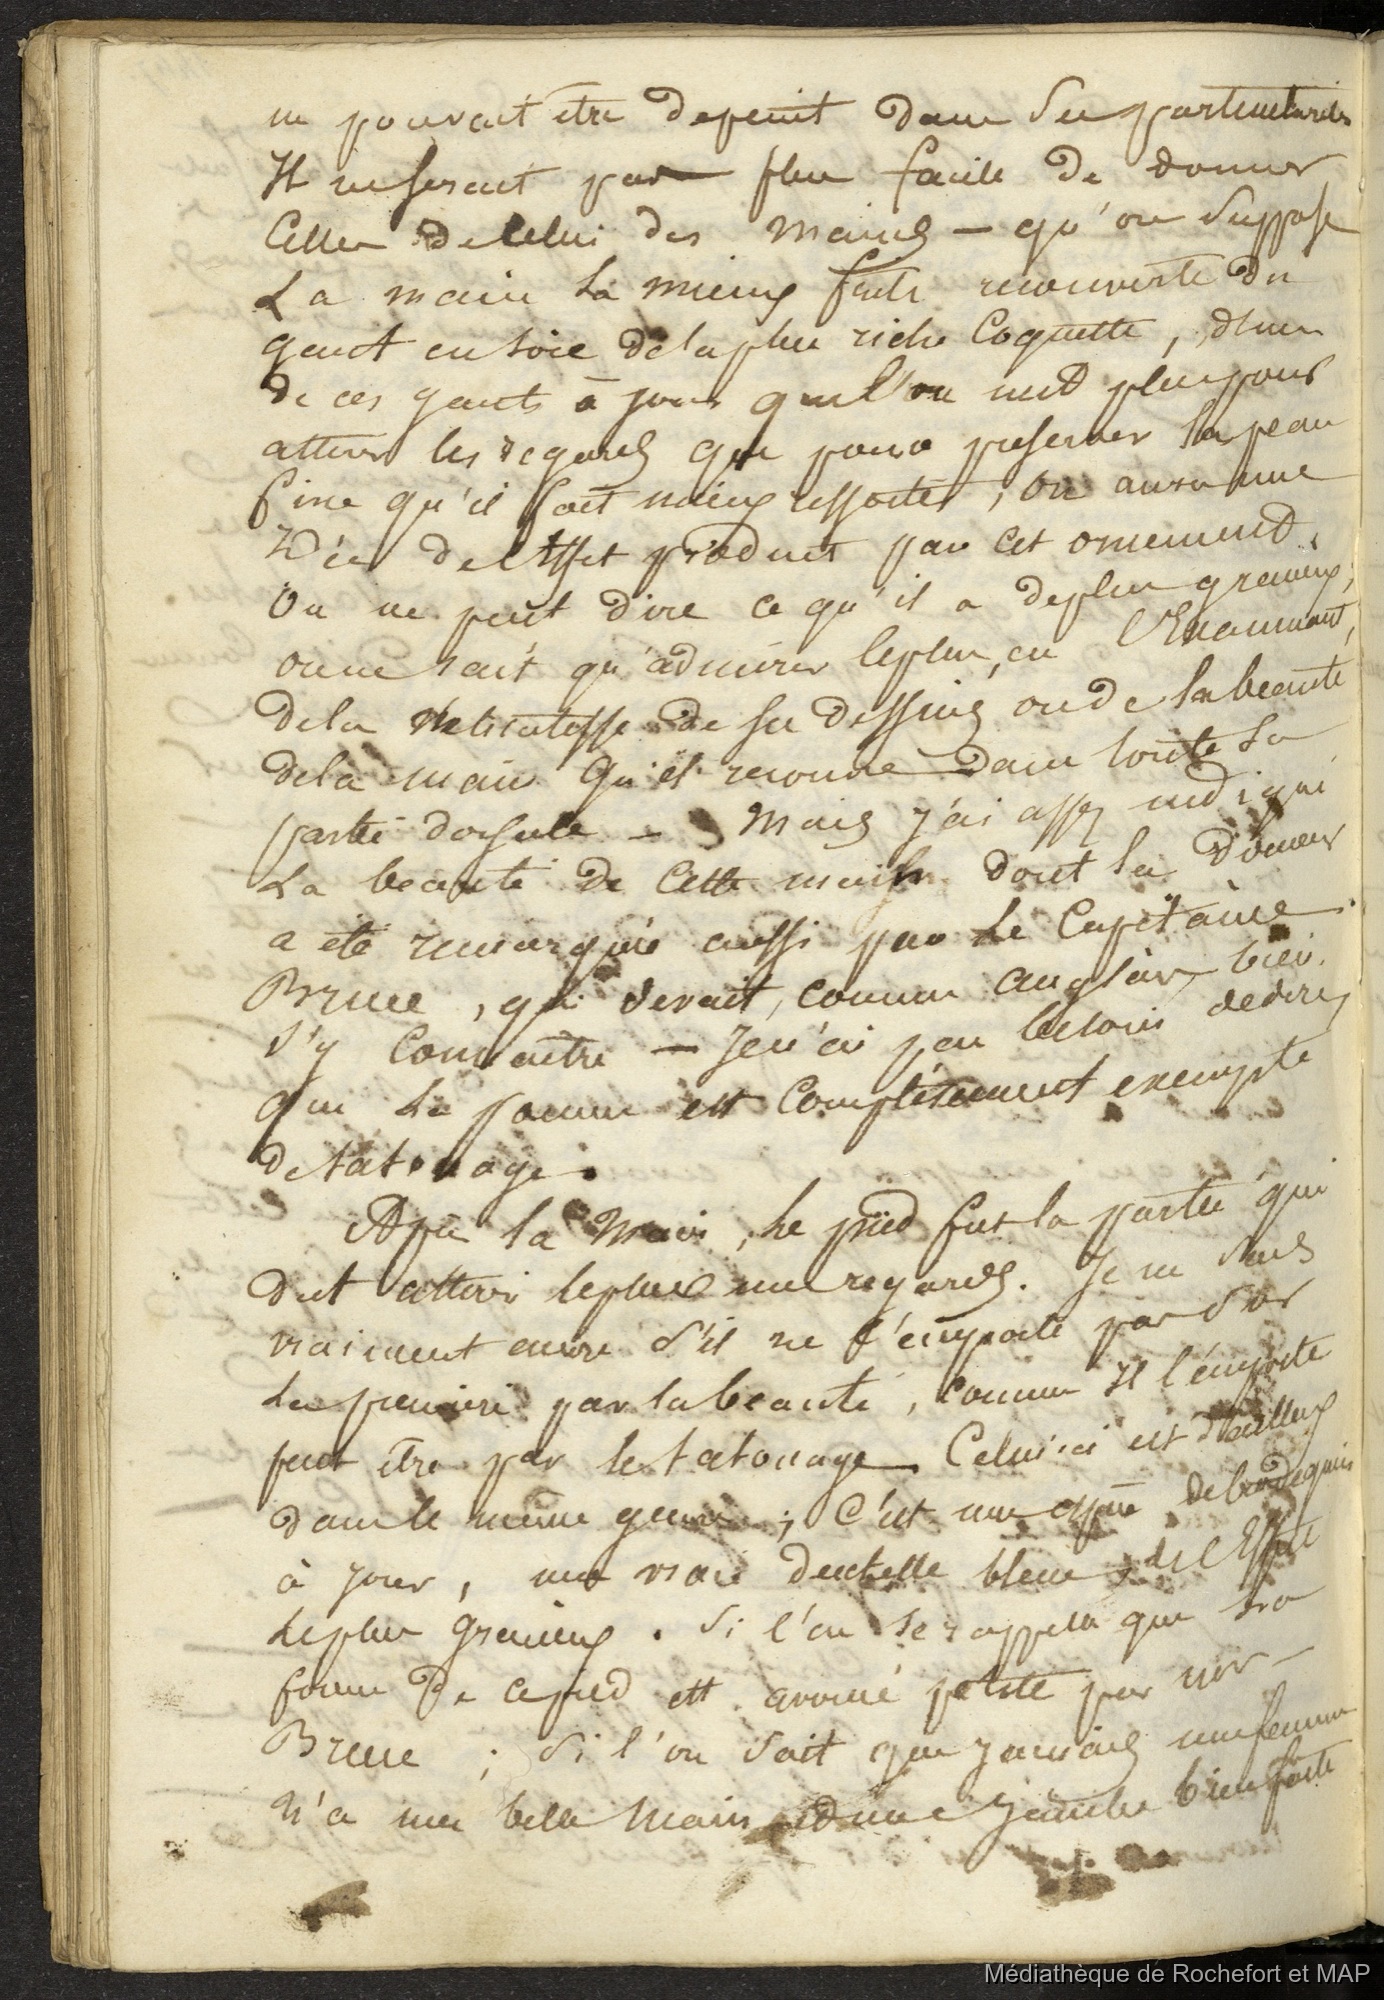 ne pouvait être depeint dans ses particularités
Il ne serait pas plus facile de donner
celles de celui des mains — qu'on suppose
La main la mieux faite recouverte du
gant en soie de la plus riche Coquette, d'un
de ces gants à jour que l'on met plus pour
attirer les regards que pour preserver la peau
fine qu'il fait mieux ressortir, on aura une
Idée de l'Effet produit par cet ornement.
On ne peut dire ce qu'il a de plus gracieux,
on ne sait qu'admirer le plus, en l'Examinant,
de la délicatesse de ses dessins ou de la beauté
de la main qu'il recouvre dans toute sa
partie dorsale — Mais j'ai assez indiqué
La beauté de cette main dont la
a été remarquée aussi par Le Capitaine
Bruce, qui devait, comme anglais, bien
s'y connaitre — Je n'ai pas besoin de dire
que La paume est complètement exempte
de tatouage.
Après la Main, le pied fut la partie qui
dut attirer le plus mes regards. Je ne sais
vraiment encore s'il ne l'emporte pas sur
La première par la beauté, comme Il l'emporte
peut être par le tatouage. Celui ci est d'ailleurs
dans le même genre; c'est une espèce de brodequin
à jour, une vraie dentelle bleue, de l'Effet
Le plus gracieux. Si l'on se rappelle que la
forme de ce pied est avoué petite par mr
Bruce; si l'on sait que jamais une femme
N'a une belle main et une jambe bien faite